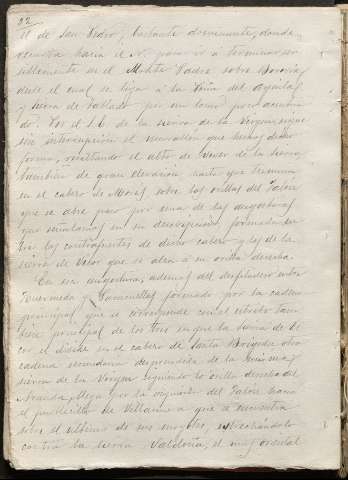 22
el de San Pedro, bastante prominente, donde
acuesta hacia el N. para ir á terminar
en el Monte Padre sobre Borovia,
desde el cual se liga á la Peña del Aguila
y sierra de Tablado por un lomo poco acentua
do. Por el S.E. de la sierra de la Virgen, sigue
sin interrupcion el murallon que hemos dicho
forma, resultando el alto de Viver de la Sierra
tambien de gran elevacion hasta que termina
en el cabezo de Morés sobre las orillas del Jalon
que se abre paso por una de las angosturas
que señalamos en su descripcion, formada en
tre las contrapuertas de dicho cabezo y las de la
sierra de Vicor que se alza á su orilla derecha.
En esa angostura, ademas del desfiladero entre
Torrermeda y Paracuellos formado por la cadena
principal que se corresponde con el estribo tam
bien principal de los tres en que la sierra de Vi
cor se divide en el cabezo de Santa Brigida otra
cadena secundaria desprendida de la misma
sierra de la Virgen siguiendo la orilla derecha del
Aranda, llega por la izquierda del Jalon hasta
el pueblecillo de Villanueva que se encuentra
sobre el último de sus mogotes, estrechandolo
contra la sierra Valdeña, el mas oriental